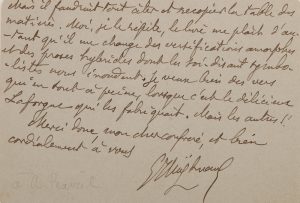 Mais il faudrait tout citer et recopier la table des
matières. Moi, je le répète, le livre me plaît d'au-
-tant qu'il me change des versifications amorphes
et des proses hybrides dont les soi-disant symbo-
listes nous inondent. Je veux bien des vers
qui n'en sont à peine, lorsque c'est le délicieux
Laforgue qui les fabriquait. Mais les autres !!
Merci donc, mon cher confrère, et bien
cordialement à vous